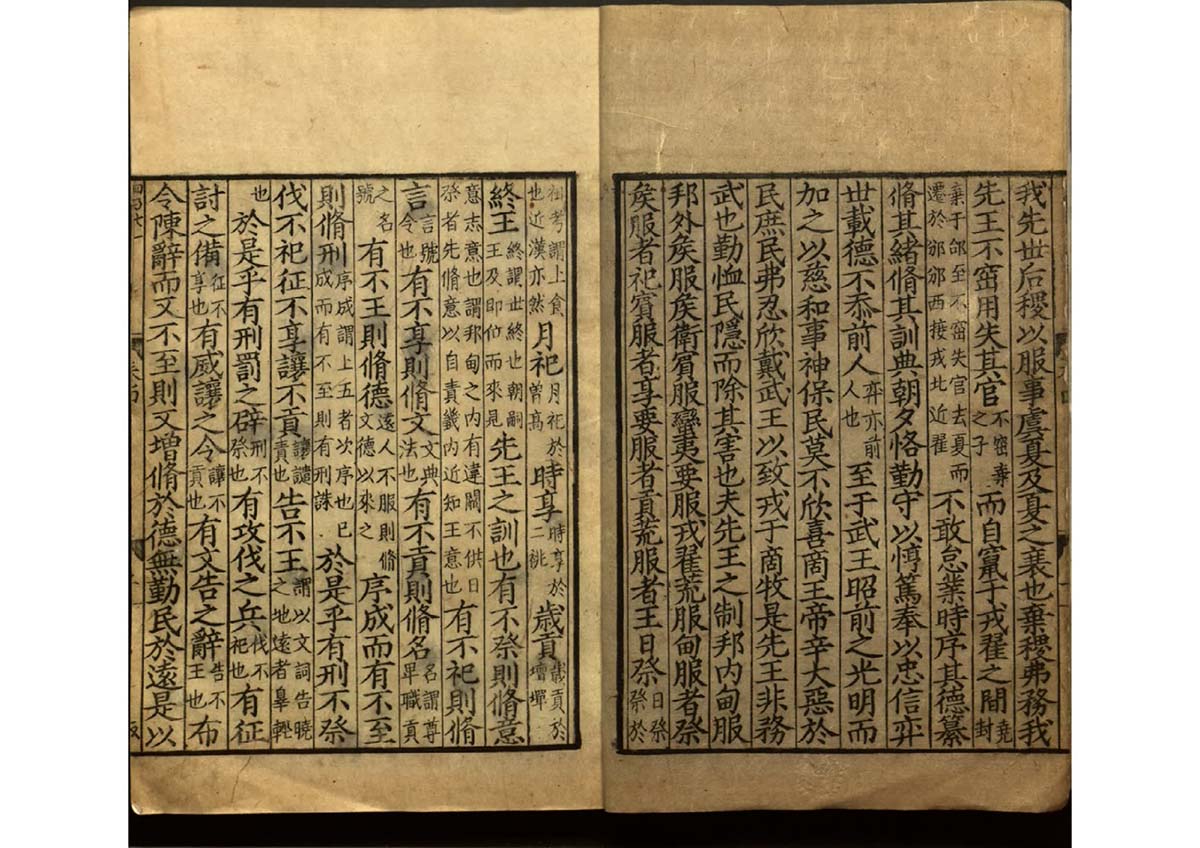 我先世后稷以服事虞夏及夏之衰也棄稷弗務我
先王不窋用失其官不窋棄之子而自竄于戎翟之間堯封
棄于邰至不窋失官去夏而遷於邠邠西接戎北近翟不敢怠業時序其德纂
脩其緒脩其訓典朝夕恪勤守以惇篤奉以忠信弈
世載德不忝前人弈亦前人也至于武王昭前之光明而
加之以慈和事神保民莫不欣喜商王帝辛大惡於
民庶民弗忍欣戴武王以致戎于商牧是先王非務
武也勤恤民隱而除其害也夫先王之制邦内甸服
邦外侯服侯衛賓服蠻夷要服戎翟荒服甸服者祭
侯服者祀賓服者享要服者貢荒服者王日祭日祭祭於
祖考謂上食也近漢亦然月祀月祀於曾高時享時享於二祧歲貢歲貢於壇墠
終王終謂世終也朝嗣王及即位而來見先王之訓也有不祭則脩意
意志意也謂邦甸之内有違闕不供日祭者先脩意以自責畿内近知王意也有不祀則脩
言言號令也有不享則脩文文典法也有不貢則脩名名謂尊卑職貢
之名號有不王則脩德遠人不服則脩文德以來之序成而有不至
則脩刑序成謂上五者次序也已成而有不至則有刑誅於是乎有刑不祭
伐不祀征不享讓不貢讓譴責也告不王謂以文詞告曉之地遠者辠輕
也於是乎有刑罰之辟刑不祭也有攻伐之兵伐不祀也有征
討之備征不享也有威讓之令讓不貢也有文告之辭告不王也布
令陳辭而又不至則又增脩於德無勤民於遠是以